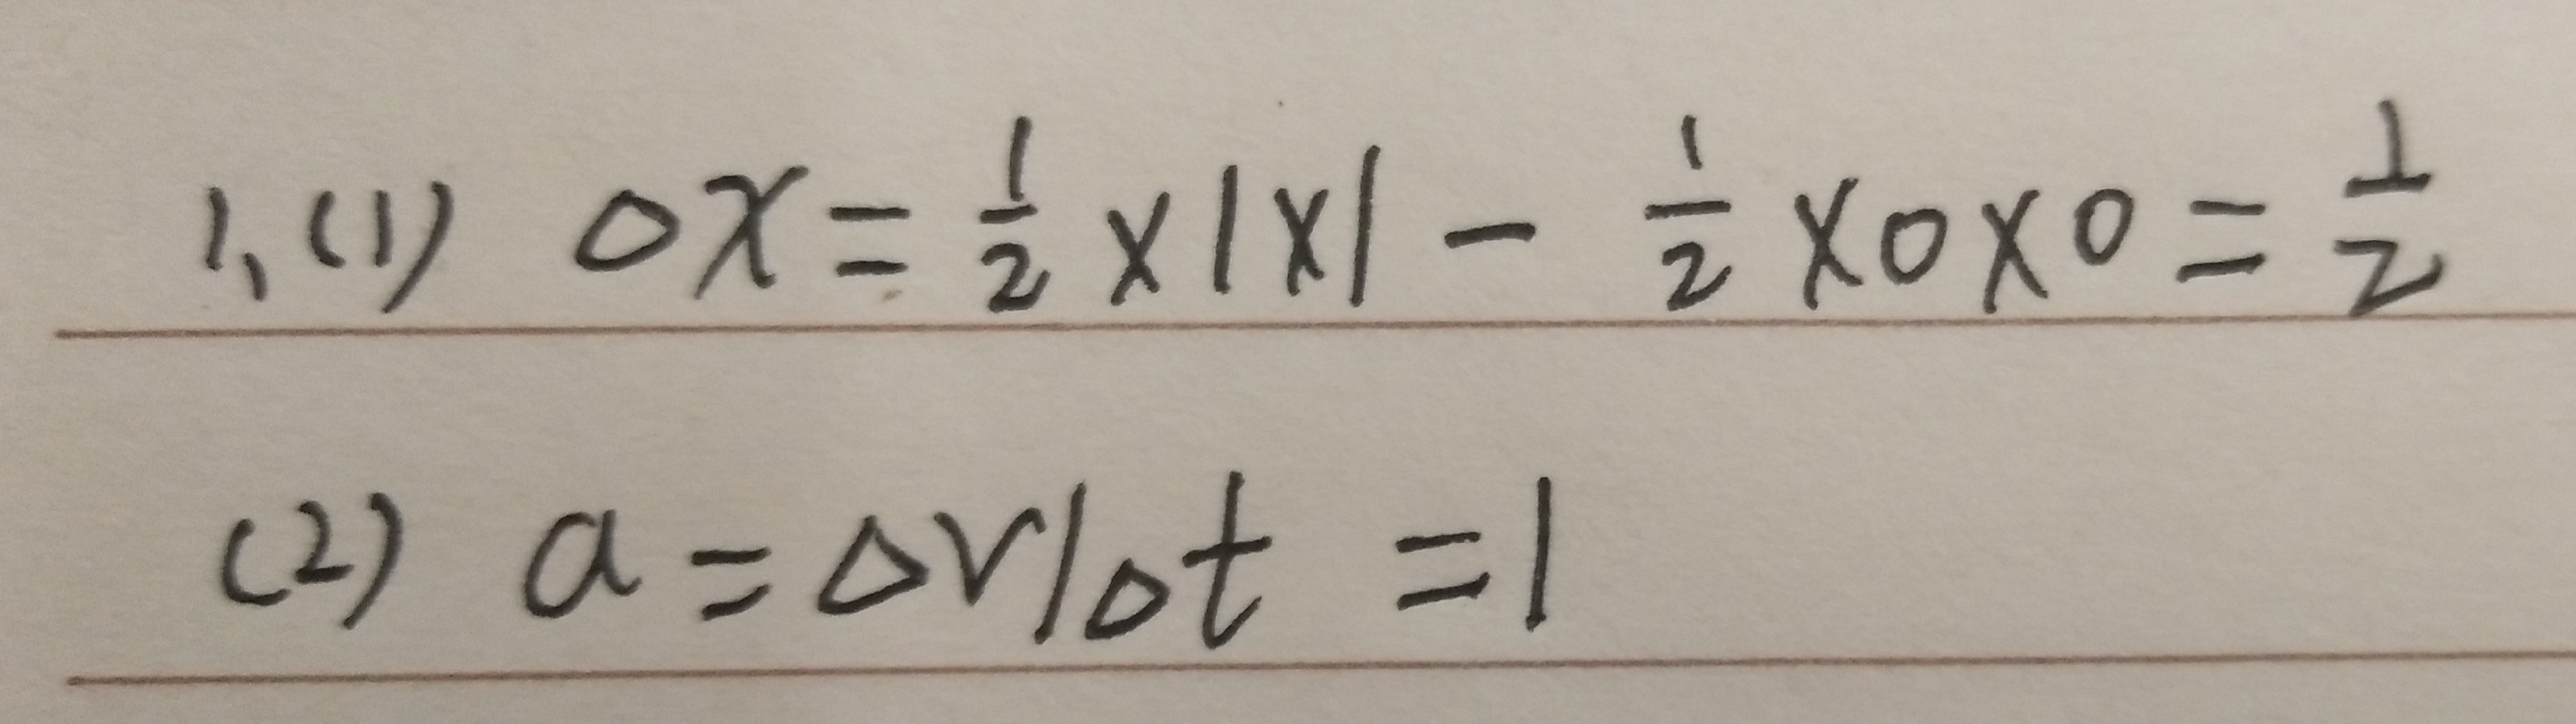 1, (1) Δx = 1/2 × 1 × 1 - 1/2 × 0 × 0 = 1/2
(2) a = Δv/Δt = 1